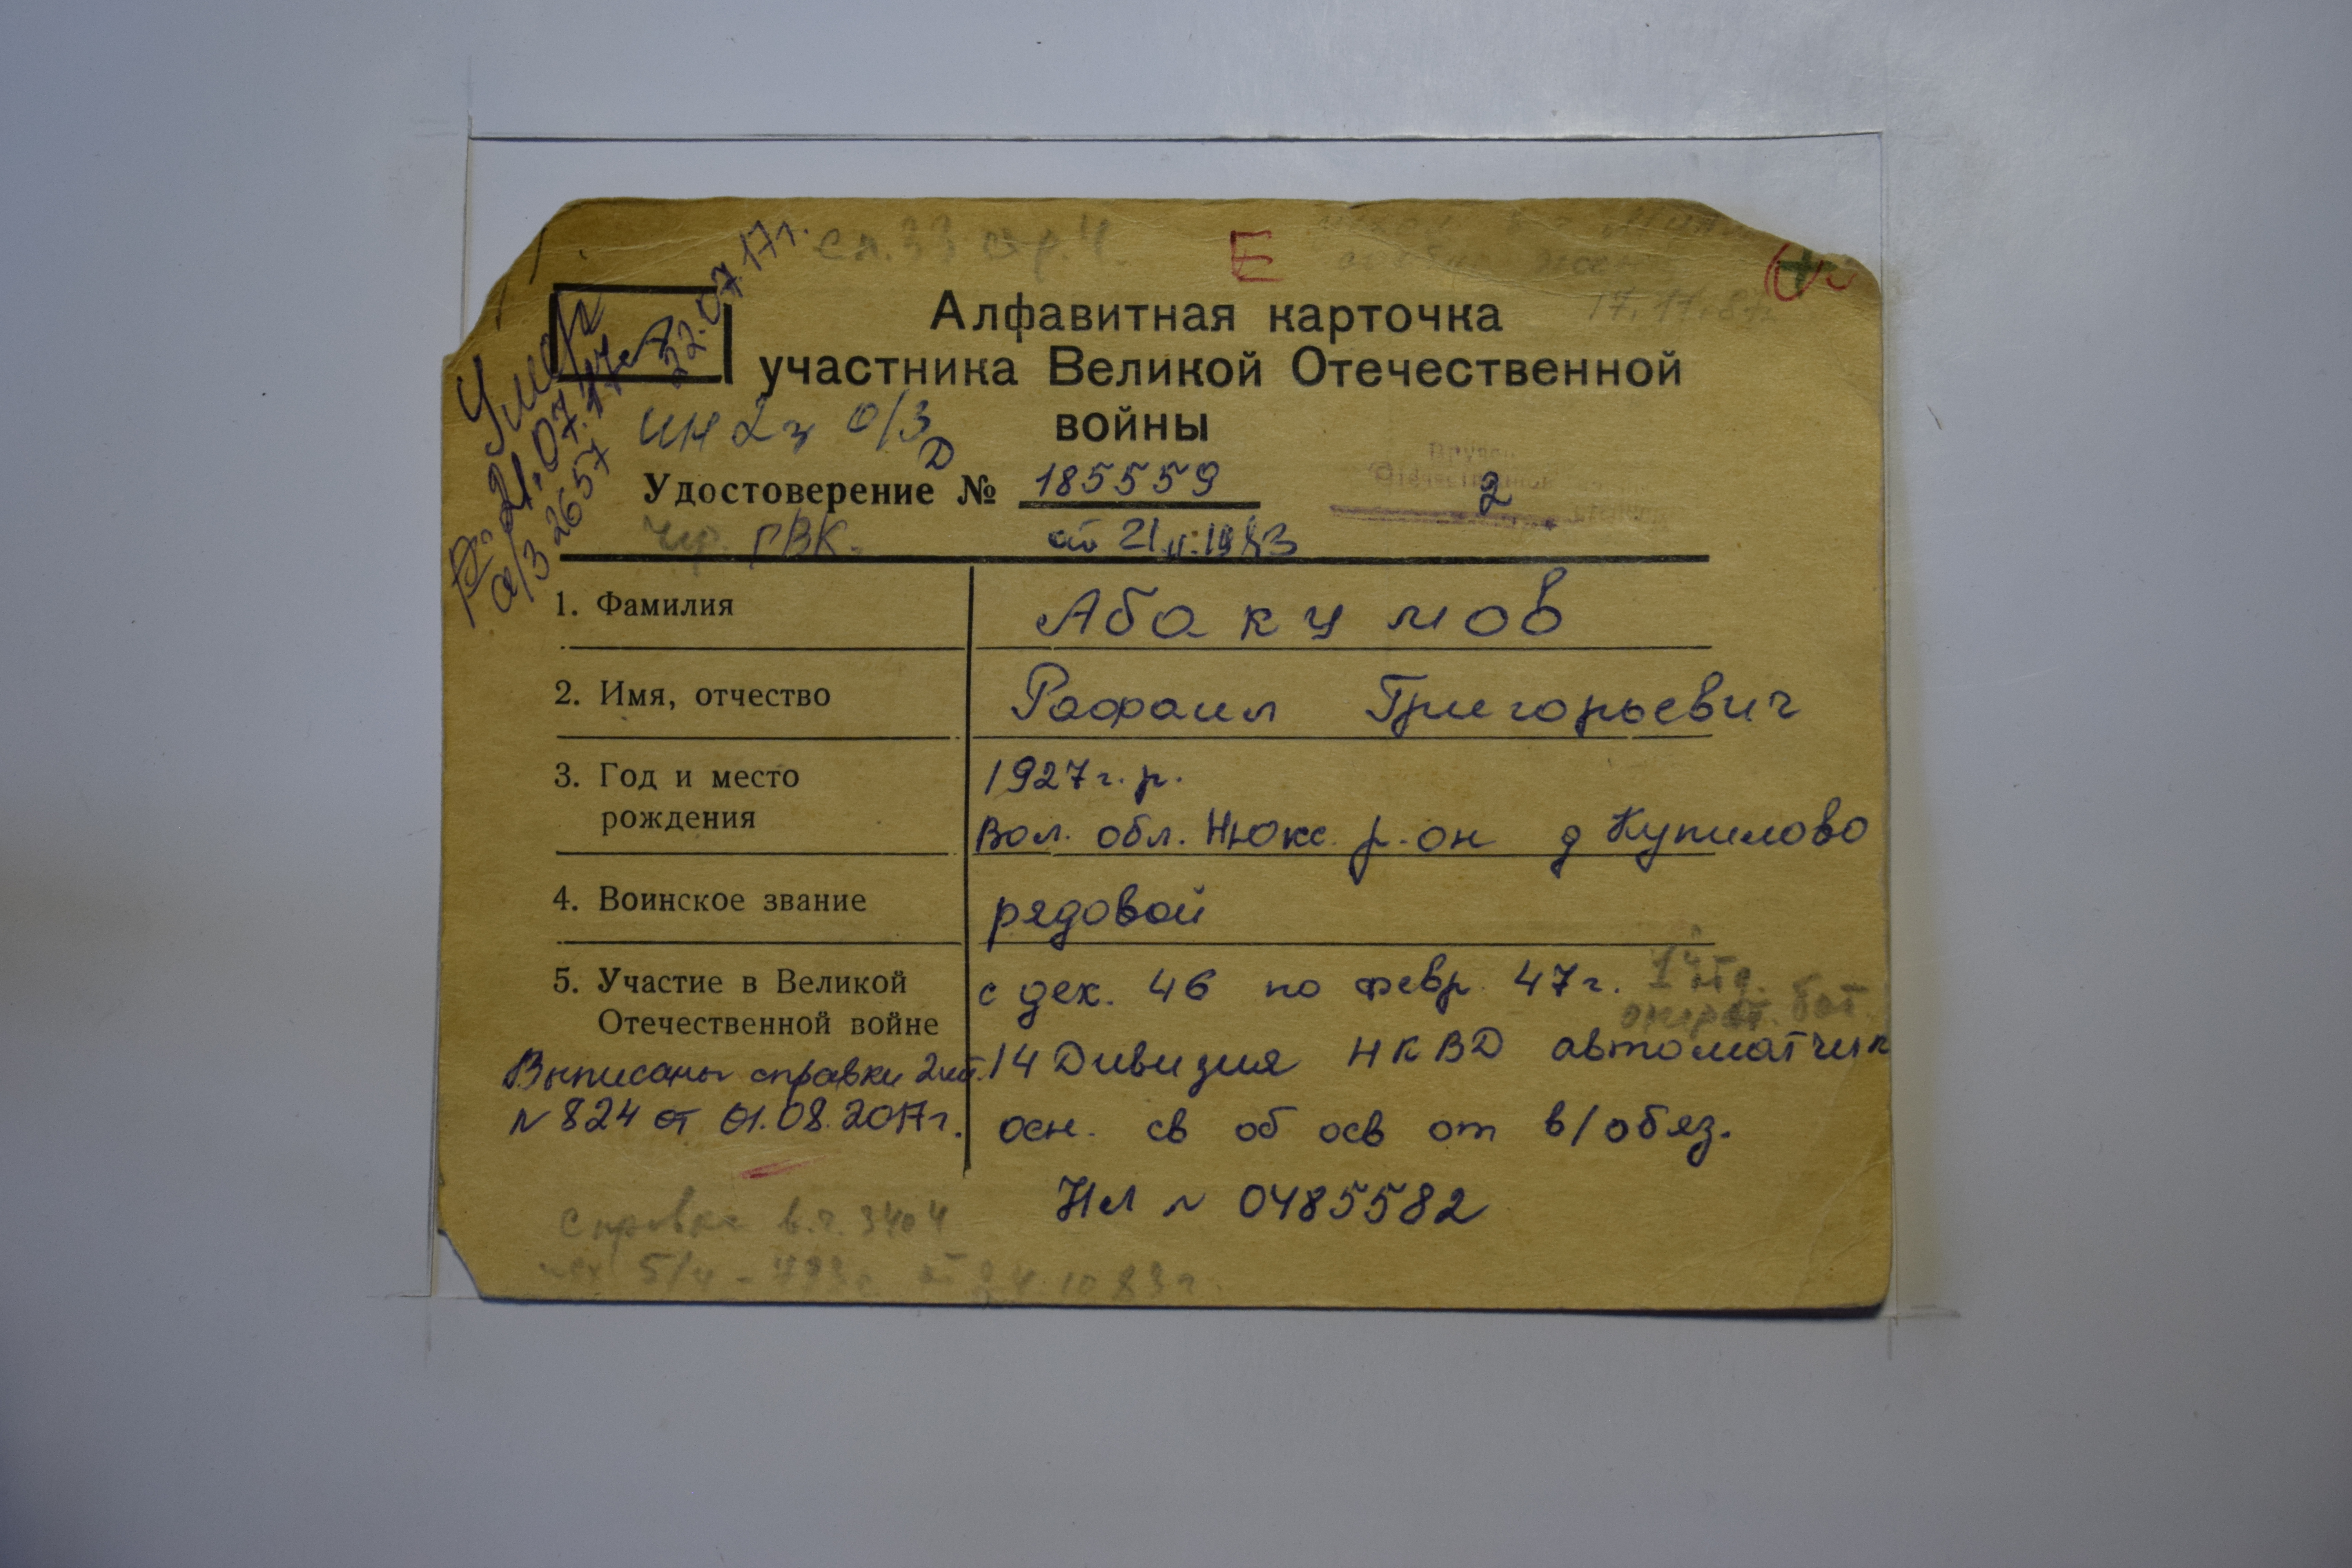 сп. 33 стр. 4.
Е
Алфавитная карточка
участника Великой Отечественной
войны
Умер
22.07.17г.
Р. 21.07.17
а/з 2657
ИН 2г о/з
Д
Удостоверение № 185559
2
ГВК. от 21.11.1983
1. Фамилия
Абакумов
2. Имя, отчество
Рафаил Григорьевич
3. Год и место
рождения
1927 г.р.
Вол. обл. Нюкс. р-он д Купилово
4. Воинское звание
рядовой
5. Участие в Великой
Отечественной войне
с дек. 46 по февр 47г.
операт. бат.
14 Дивизия НКВД автоматчик
осн. св об осв от в/обяз.
Нл № 0485582
Выписаны справки 2шт.
№ 824 от 01.08.2017г.
Справка в.ч. 3404
24.10.83г.